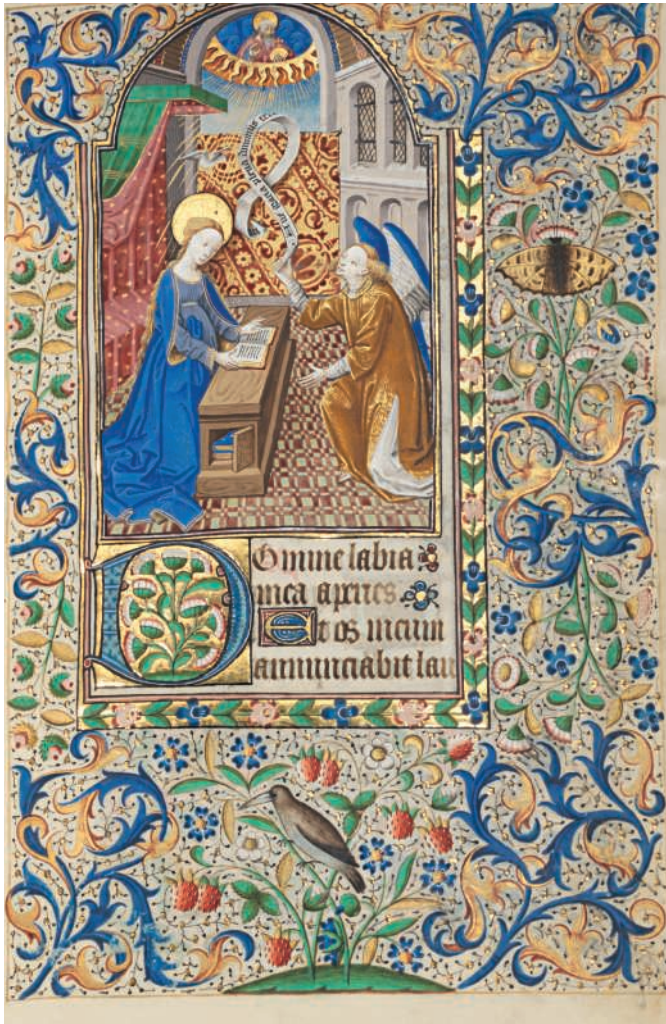 Domine labia
mea aperies
Et os meum
annunciabit lau